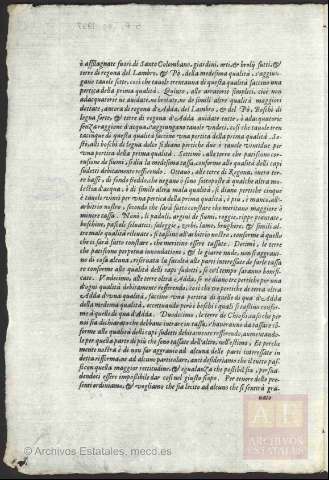 è assignate fuori di Santo Colombano, giardini, orti, & broli sutti, &
terre di regona del Lambro, & Pò, della medesima qualità, s'aggiun-
gano tauole sette, così che tauole trentauna di questa qualità faccino vna
pertica della prima qualità. Quinto, alle aratorie simplici, cioè non
adacquatorie ne auidate, ne britate, ne di simili altre qualità maggiori
dettate, ancora di regona di Adda, & del Pò, Boschi di
legna forte, & terre di regona d'Adda auidate rotte, ò alaquatorie
senza ragione d'acqua, s'aggiungano tauole vndeci, così che tauole tren
tacinque di questa qualità faccino vna pertica della prima qualità. Se-
sto, alli boschi di legna dolce si diano pertiche due è tauole vintidue per
vna pertica della prima qualità. Settimo, alle terre che patiscono cor-
rosione di fiume, si dia la medesima tassa, conforme alle qualità delli capi
sudetti debitamente rifferendo. Ottauo, alle terre di Regona, ò vero ter-
re basse, di fondo freddo, che negano ò sono sottoposte à qualche altra mo-
lestia d'acqua, ò di simile altra mala qualità, si diano pertiche cinque
è tauole vinti per vna pertica della prima qualità, è più, è manco, all'-
arbitrio nostro, secondo che sarà fatto constare che meritano maggiore ò
minore tassa. Nonò, li paduli, argini de fiumi, roggie, rippe pratate,
boschine, pascoli saluatici, soleggie, zerbi, lame, brughere, & simili al-
tre male qualità rileuate, si taxino all'arbitrio nostro, conforme à quello
che ci sarà fatto constare, che meritino essere tassate. Decimò, le terre
che patiscono perpetua innondatione, & le giarre nude, non s'aggraua-
no di cosa alcuna, riseruata la facoltà alle parti interessate di farle tassa
re conforme alle qualità delli capi sudetti, se col tempo saranno bonifi-
cate. Vndecimo, alle terre oltra Adda, si ne diano tre pertiche per vna
d'ogni qualità debitamente rifferendo, così che tre pertiche di terra oltra
Adda d'vna qualità, faccino vna pertica di quelle di qua d'Adda
della medesima qualità, accettuando però è boschi quali si essistino confor-
me à quelle di qua d'Adda. Duodecimo, le terre de Chiosi così che per
noi sia dechiarato che debbano intrare in tassa, s'haueranno da tassare cō
forme alle qualità delli capi sudetti debitamente rifferendo, aumentando-
le per quella parte di più che sono tassate dell'altre, nell'estimo. Et perche
mente nostra è di non far aggrauio ad alcuna delle parti interessate in
detta rifformatione ad alcuno particolare, anzi desideriamo che il tutto pas-
si con quella maggior rettitudine, & egualanza che possibil sia, persua-
dendosi essere impossibile dar così nel giusto segno. Per tenore delle pre-
senti ordiniamo, & vogliamo che sia lecito ad alcuno che si sentirà gra-
uato
AE
ARCHIVOS
ESTATALES
© Archivos Estatales, mecd.es